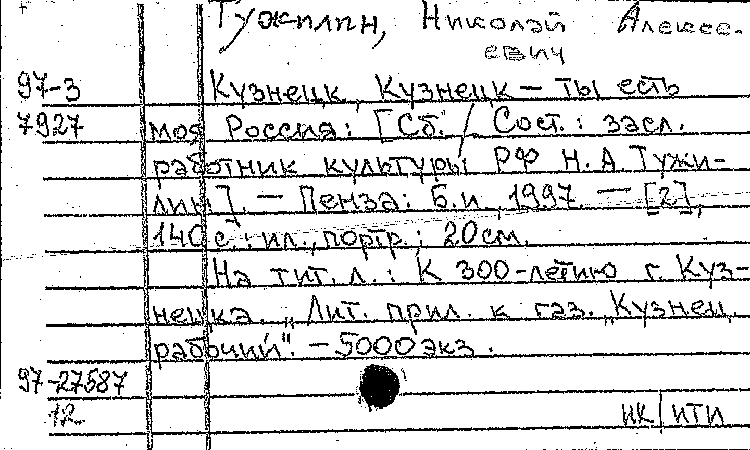 Тужилин, Николай Алексе-
евич
97-3 Кузнецк, Кузнецк — ты есть
7927 моя Россия: [Сб. / Сост.: засл.
работник культуры РФ Н.А. Тужи-
лин]. — Пенза: Б.и., 1997. — [2],
140 с.: ил., портр.; 20 см.
На тит. л.: К 300-летию г. Куз-
нецка. „Лит. прил. к газ. „Кузнец.
рабочий". — 5000 экз.
97-27587
12 нк|ити